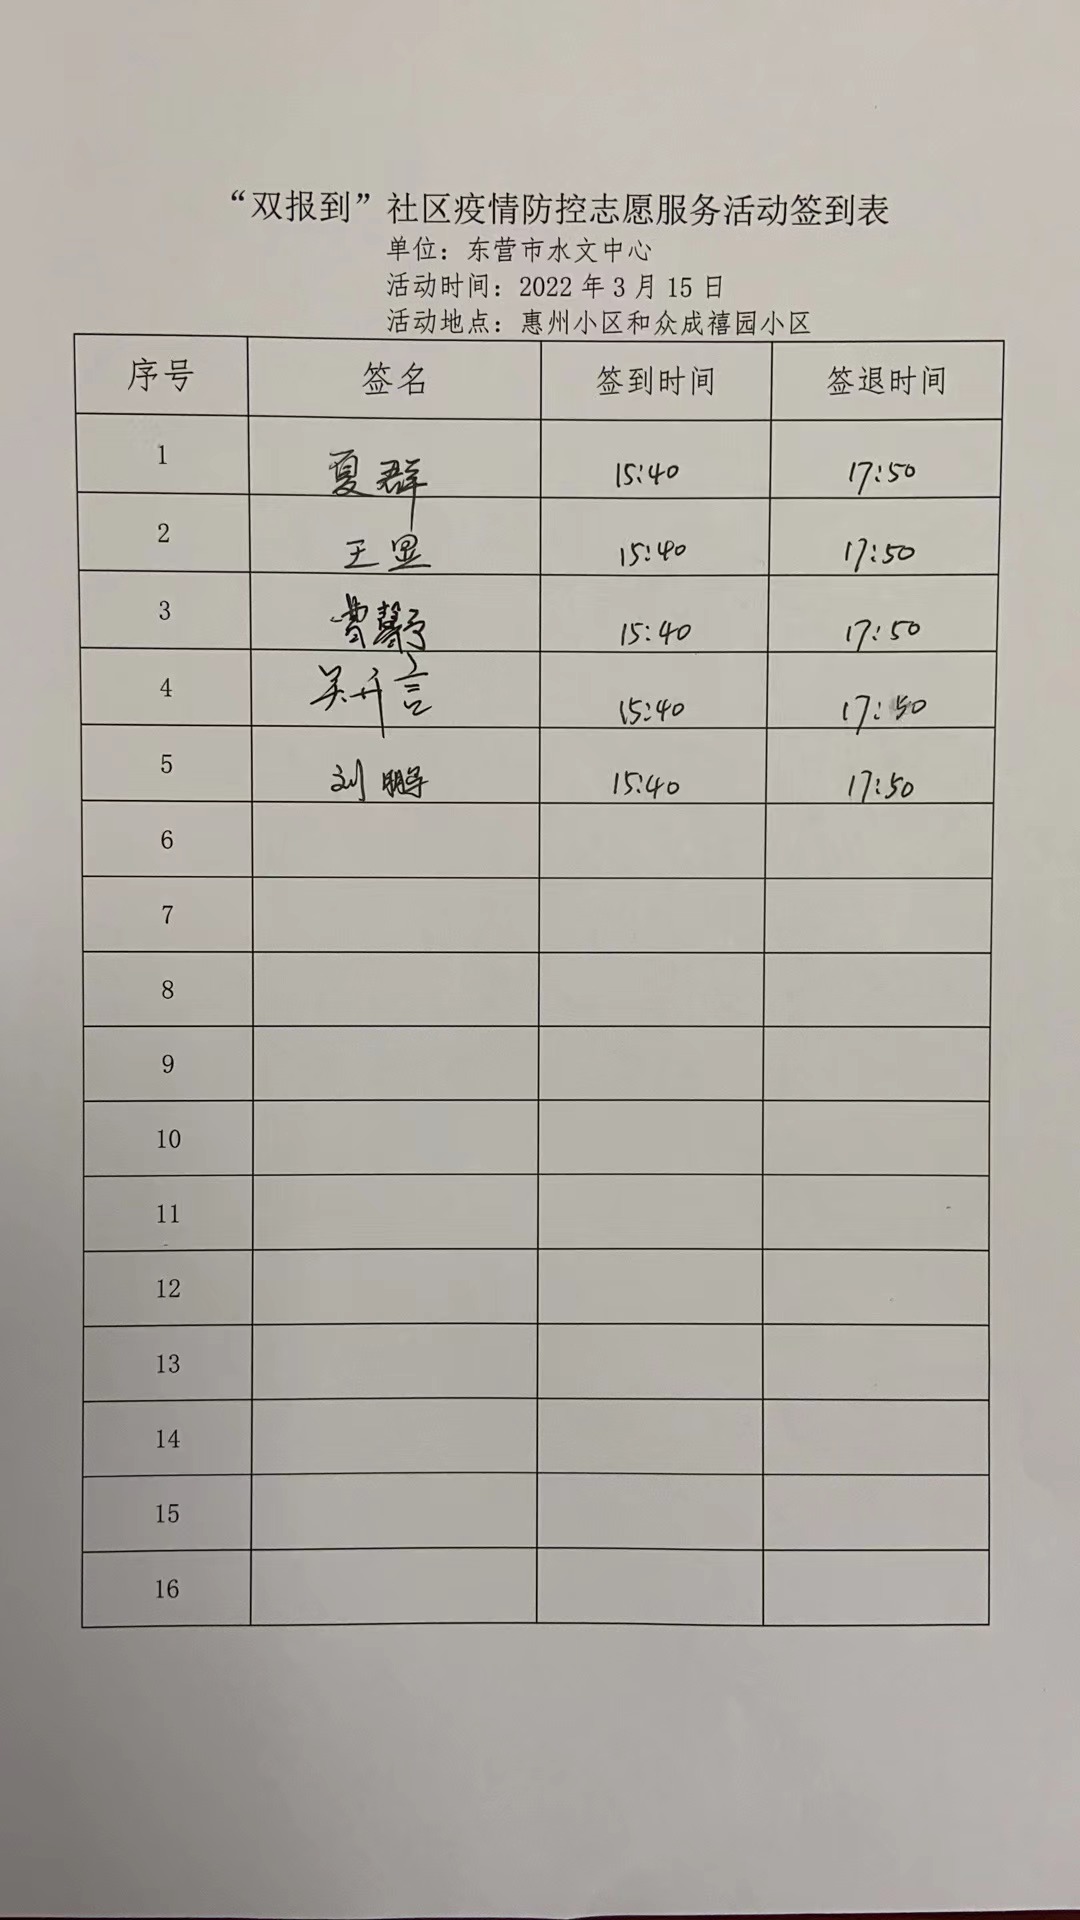 “双报到”社区疫情防控志愿服务活动签到表
单位：东营市水文中心
活动时间：2022 年 3 月 15 日
活动地点：惠州小区和众成禧园小区
序号 签名 签到时间 签退时间
1 夏群 15:40 17:50
2 王昱 15:40 17:50
3 15:40 17:50
4 吴丹言 15:40 17:50
5 刘鹏 15:40 17:50
6
7
8
9
10
11
12
13
14
15
16